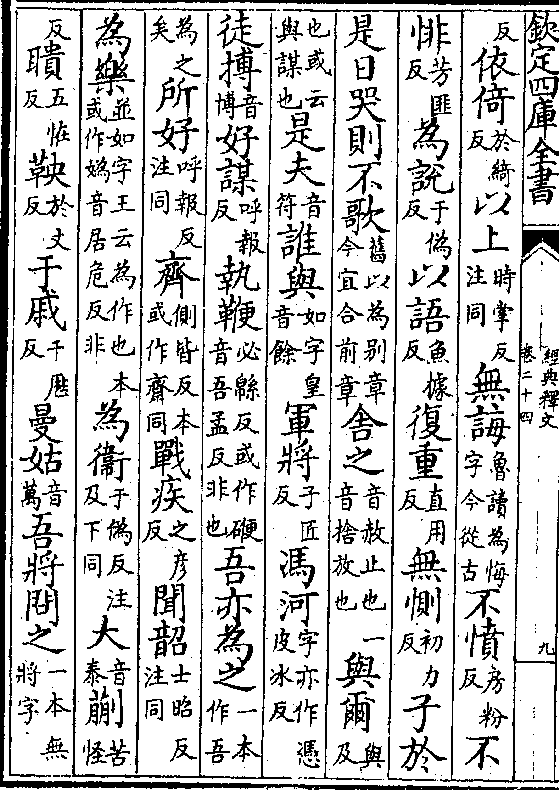 欽定四庫全書 經典釋文 卷二十四 九
反依倚於綺反以上時掌反注同無誨魯讀為悔字今從古不憤房粉反不
悱芳匪反為説于偽反以語魚據反復重直用反無惻初力反子於
是日哭則不歌舊以為别章今宜合前章舍之音赦止也一音捨放也與爾與及
也或云與謀也是夫音符誰與如字皇音餘軍將子匠反馮河字亦作憑皮冰反
徒搏音博好謀呼報反執鞭必緜反或作硬音吾孟反非也吾亦為之一本作吾
為之矣所好呼報反注同齊側皆反本或作齋同戰疾之彦反聞韶士昭反注同
為樂並如字王云為作也本或作媯音居危反非為衛于偽反注及下同大音泰蒯苦怪
反聵五恠反鞅於丈反干戚千歷反曼姑音萬吾將問之一本無將字